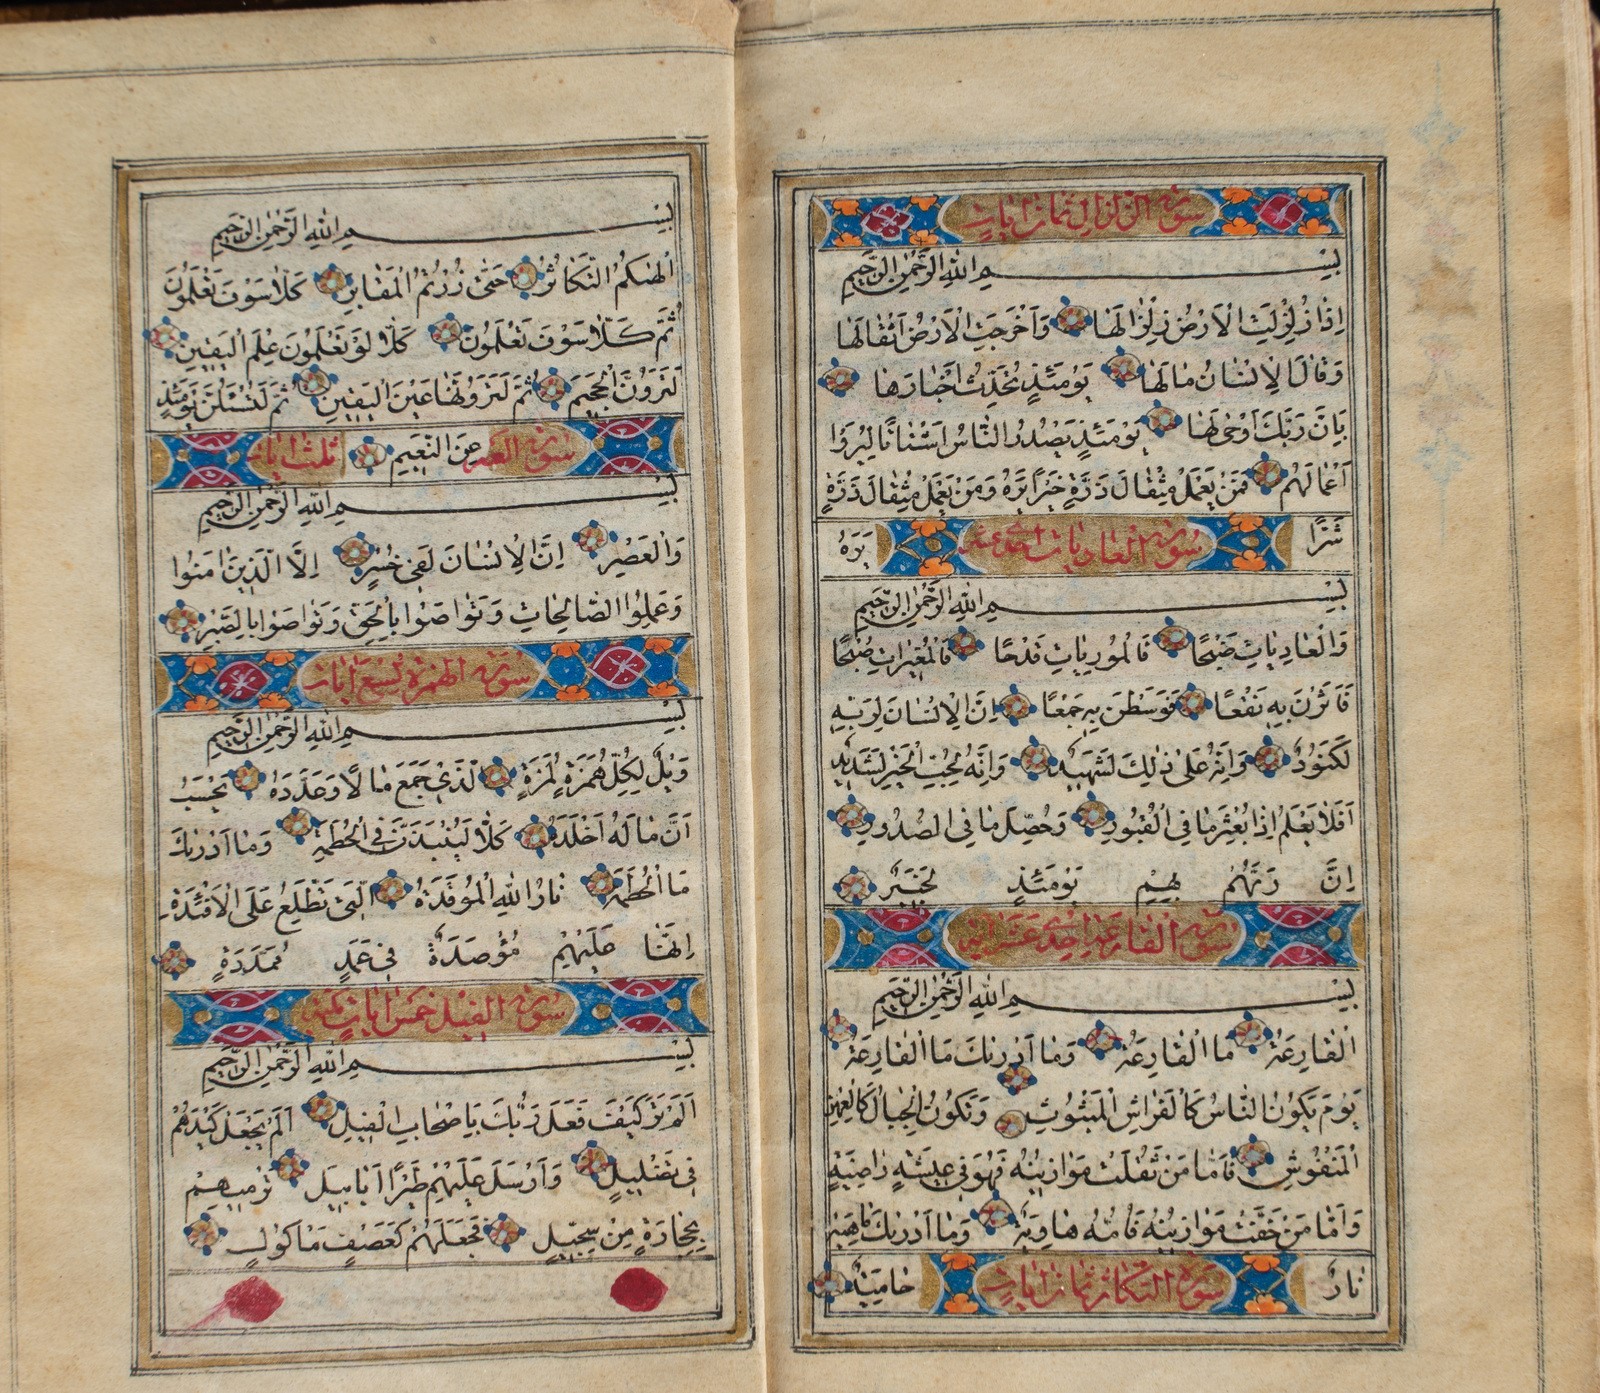 سورة الزلزال ثمان ايات
بسم الله الرحمن الرحيم
اِذَا زُلْزِلَتِ الْاَرْضُ زِلْزَالَهَا وَاَخْرَجَتِ الْاَرْضُ اَثْقَالَهَا
وَقَالَ الْاِنْسَانُ مَا لَهَا يَوْمَئِذٍ تُحَدِّثُ اَخْبَارَهَا
بِاَنَّ رَبَّكَ اَوْحٰى لَهَا يَوْمَئِذٍ يَصْدُرُ النَّاسُ اَشْتَاتًا لِيُرَوْا
اَعْمَالَهُمْ فَمَنْ يَعْمَلْ مِثْقَالَ ذَرَّةٍ خَيْرًا يَرَهُ وَمَنْ يَعْمَلْ مِثْقَالَ ذَرَّةٍ
شَرًّا سورة العاديات احدى عشر يَرَهُ
بسم الله الرحمن الرحيم
وَالْعَادِيَاتِ ضَبْحًا فَالْمُورِيَاتِ قَدْحًا فَالْمُغِيرَاتِ صُبْحًا
فَاَثَرْنَ بِهِ نَقْعًا فَوَسَطْنَ بِهِ جَمْعًا اِنَّ الْاِنْسَانَ لِرَبِّهِ
لَكَنُودٌ وَاِنَّهُ عَلٰى ذٰلِكَ لَشَهِيدٌ وَاِنَّهُ لِحُبِّ الْخَيْرِ لَشَدِيدٌ
اَفَلَا يَعْلَمُ اِذَا بُعْثِرَ مَا فِي الْقُبُورِ وَحُصِّلَ مَا فِي الصُّدُورِ
اِنَّ رَبَّهُمْ بِهِمْ يَوْمَئِذٍ لَخَبِيرٌ
سورة القارعة احدى عشر اية
بسم الله الرحمن الرحيم
اَلْقَارِعَةُ مَا الْقَارِعَةُ وَمَا اَدْرٰيكَ مَا الْقَارِعَةُ
يَوْمَ يَكُونُ النَّاسُ كَالْفَرَاشِ الْمَبْثُوثِ وَتَكُونُ الْجِبَالُ كَالْعِهْنِ
الْمَنْفُوشِ فَاَمَّا مَنْ ثَقُلَتْ مَوَازِينُهُ فَهُوَ فِي عِيشَةٍ رَاضِيَةٍ
وَاَمَّا مَنْ خَفَّتْ مَوَازِينُهُ فَاُمُّهُ هَاوِيَةٌ وَمَا اَدْرٰيكَ مَا هِيَهْ
نَارٌ سورة التكاثر ثمان ايات حَامِيَةٌ
بسم الله الرحمن الرحيم
اَلْهٰيكُمُ التَّكَاثُرُ حَتّٰى زُرْتُمُ الْمَقَابِرَ كَلَّا سَوْفَ تَعْلَمُونَ
ثُمَّ كَلَّا سَوْفَ تَعْلَمُونَ كَلَّا لَوْ تَعْلَمُونَ عِلْمَ الْيَقِينِ
لَتَرَوُنَّ الْجَحِيمَ ثُمَّ لَتَرَوُنَّهَا عَيْنَ الْيَقِينِ ثُمَّ لَتُسْئَلُنَّ يَوْمَئِذٍ
سورة العصر عَنِ النَّعِيمِ ثلث ايات
بسم الله الرحمن الرحيم
وَالْعَصْرِ اِنَّ الْاِنْسَانَ لَفِي خُسْرٍ اِلَّا الَّذِينَ اٰمَنُوا
وَعَمِلُوا الصَّالِحَاتِ وَتَوَاصَوْا بِالْحَقِّ وَتَوَاصَوْا بِالصَّبْرِ
سورة الهمزة تسع ايات
بسم الله الرحمن الرحيم
وَيْلٌ لِكُلِّ هُمَزَةٍ لُمَزَةٍ الَّذِي جَمَعَ مَالًا وَعَدَّدَهُ يَحْسَبُ
اَنَّ مَالَهُ اَخْلَدَهُ كَلَّا لَيُنْبَذَنَّ فِي الْحُطَمَةِ وَمَا اَدْرٰيكَ
مَا الْحُطَمَةُ نَارُ اللهِ الْمُوقَدَةُ الَّتِي تَطَّلِعُ عَلَى الْاَفْئِدَةِ
اِنَّهَا عَلَيْهِمْ مُؤْصَدَةٌ فِي عَمَدٍ مُمَدَّدَةٍ
سورة الفيل خمس ايات مكية
بسم الله الرحمن الرحيم
اَلَمْ تَرَ كَيْفَ فَعَلَ رَبُّكَ بِاَصْحَابِ الْفِيلِ اَلَمْ يَجْعَلْ كَيْدَهُمْ
فِي تَضْلِيلٍ وَاَرْسَلَ عَلَيْهِمْ طَيْرًا اَبَابِيلَ تَرْمِيهِمْ
بِحِجَارَةٍ مِنْ سِجِّيلٍ فَجَعَلَهُمْ كَعَصْفٍ مَأْكُولٍ